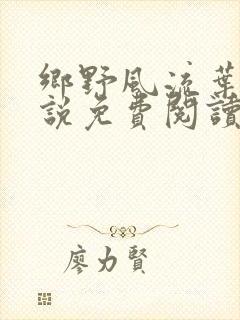 鄉野風流葉
說免費閱讀
廖力賢